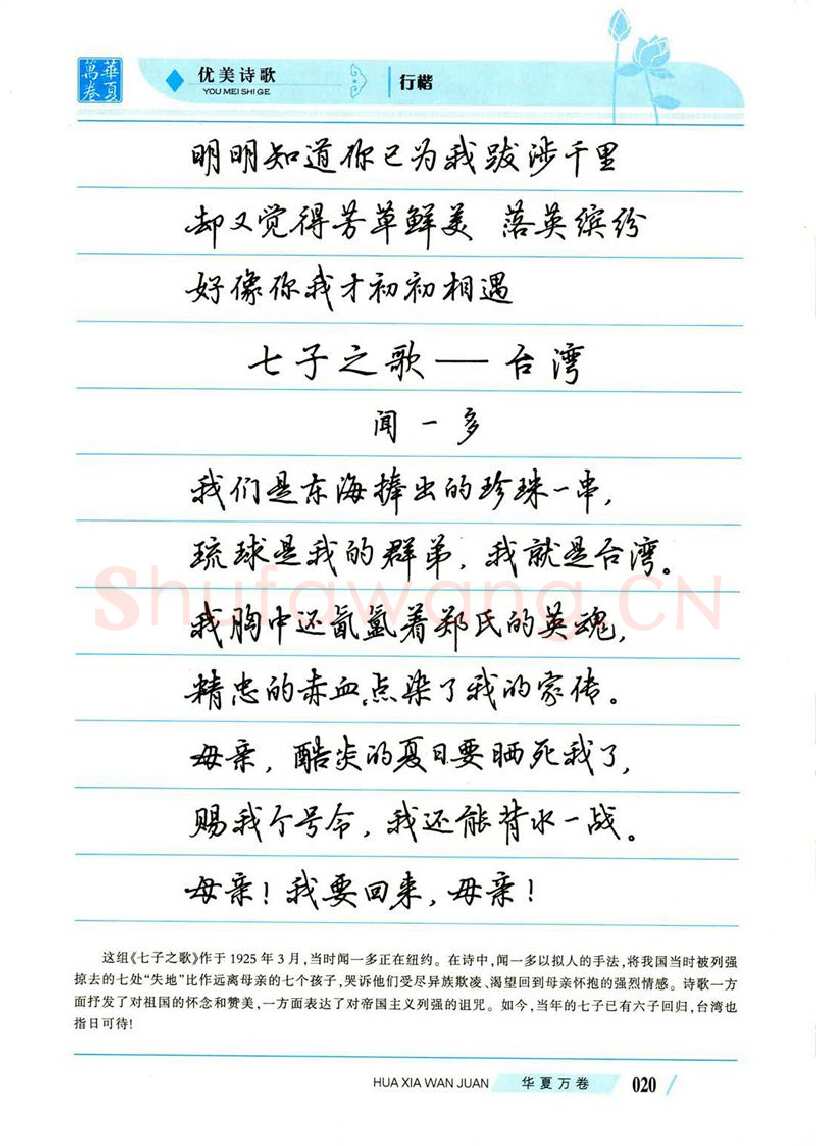 華夏
萬卷
优美诗歌
YOU MEI SHI GE
行楷
明明知道你已为我跋涉千里
却又觉得芳草鲜美 落英缤纷
好像你我才初初相遇
七子之歌——台湾
闻一多
我们是东海捧出的珍珠一串,
琉球是我的群弟,我就是台湾。
Shufawang.CN
我胸中还氤氲着郑氏的英魂,
精忠的赤血点染了我的家传。
母亲,酷炎的夏日要晒死我了,
赐我个号令,我还能背水一战。
母亲!我要回来,母亲!
这组《七子之歌》作于 1925 年 3 月,当时闻一多正在纽约。在诗中,闻一多以拟人的手法,将我国当时被列强
掠去的七处“失地”比作远离母亲的七个孩子,哭诉他们受尽异族欺凌、渴望回到母亲怀抱的强烈情感。诗歌一方
面抒发了对祖国的怀念和赞美,一方面表达了对帝国主义列强的诅咒。如今,当年的七子已有六子回归,台湾也
指日可待!
HUA XIA WAN JUAN 华夏万卷 020